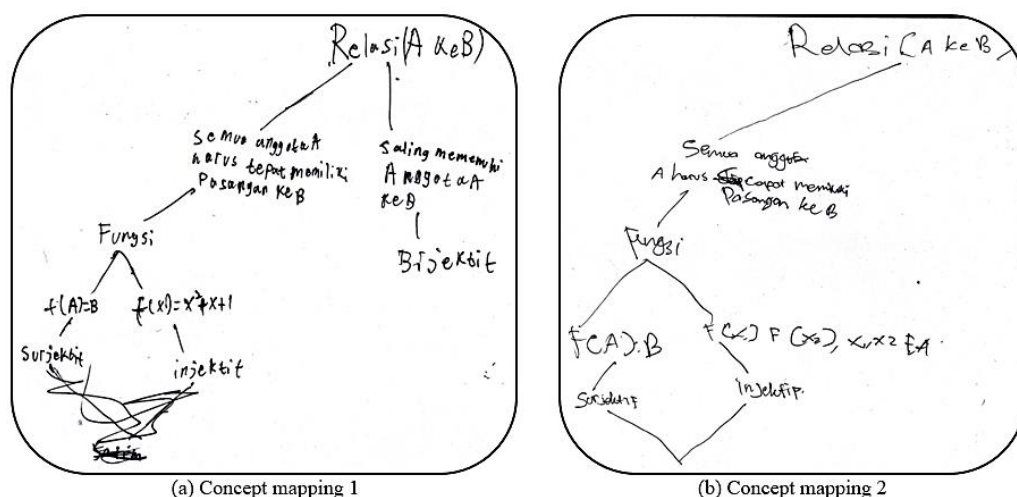 Relasi (A ke B)
Semua anggota A
harus tepat memiliki
Pasangan ke B
saling memenuhi
Anggota A
ke B
Bijektif
Fungsi
f(A)=B
f(x)=x²+x+1
Surjektif
injektif
(a) Concept mapping 1
Relasi (A ke B)
Semua anggota
A harus memiliki
Pasangan ke B
Fungsi
f(A)=B
F(x₁) F(x₂), x₁,x₂ E A
Surjektif
Injektip
(b) Concept mapping 2